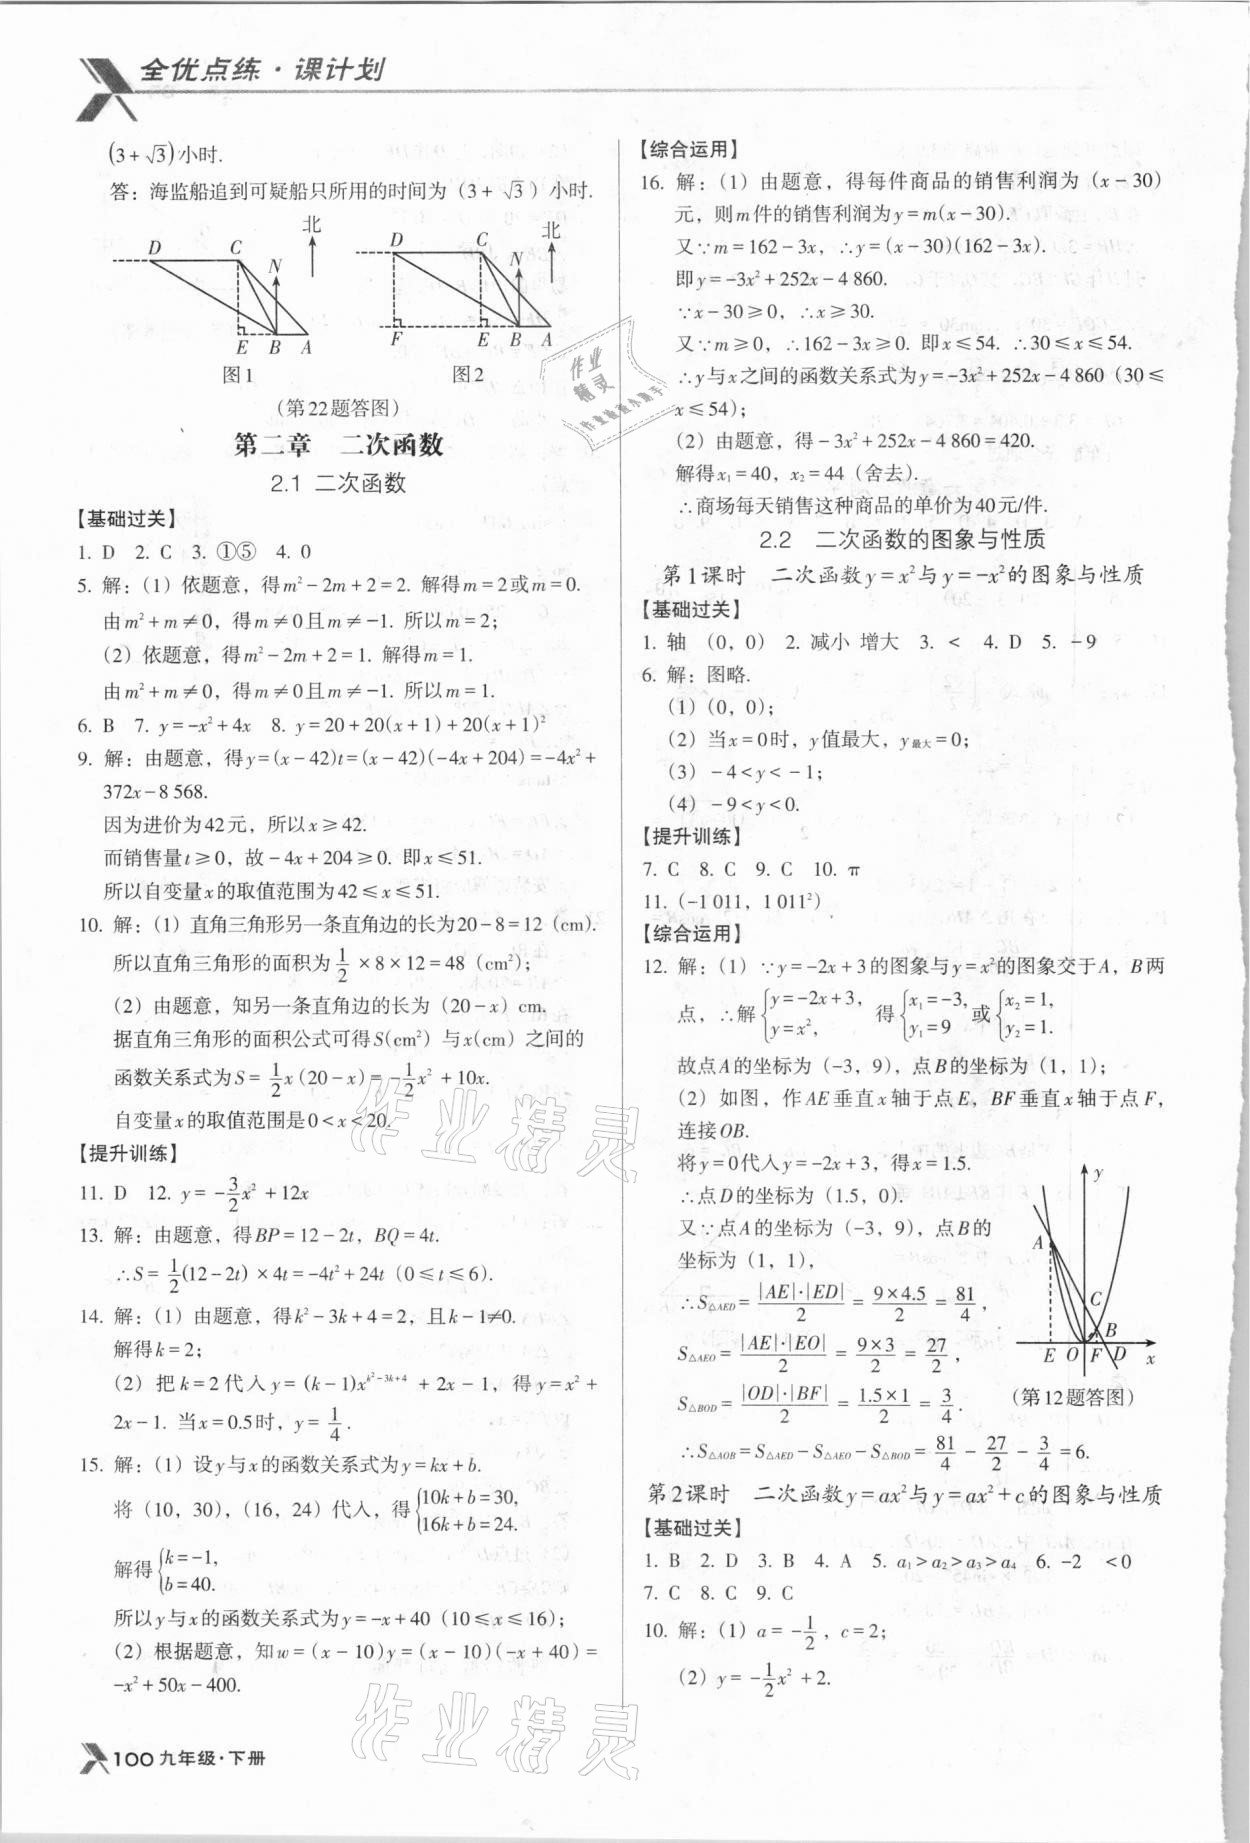 全优点练·课计划
(3+√3)小时.
答：海监船追到可疑船只所用的时间为（3+√3）小时.
北
D C N
E B A
图1
北
D C N
F E B A
图2
（第22题答图）
第二章 二次函数
2.1 二次函数
【基础过关】
1. D 2. C 3. ①⑤ 4. 0
5. 解：（1）依题意，得m²-2m+2=2. 解得m=2或m=0.
由m²+m≠0，得m≠0且m≠-1. 所以m=2；
（2）依题意，得m²-2m+2=1. 解得m=1.
由m²+m≠0，得m≠0且m≠-1. 所以m=1.
6. B 7. y=-x²+4x 8. y=20+20(x+1)+20(x+1)²
9. 解：由题意，得y=(x-42)t=(x-42)(-4x+204)=-4x²+
372x-8 568.
因为进价为42元，所以x≥42.
而销售量t≥0，故-4x+204≥0. 即x≤51.
所以自变量x的取值范围为42≤x≤51.
10. 解：（1）直角三角形另一条直角边的长为20-8=12（cm）.
所以直角三角形的面积为1/2×8×12=48（cm²）；
（2）由题意，知另一条直角边的长为（20-x）cm,
据直角三角形的面积公式可得S(cm²）与x(cm）之间的
函数关系式为S=1/2x(20-x)=-1/2x²+10x.
自变量x的取值范围是0<x<20.
【提升训练】
11. D 12. y=-3/2x²+12x
13. 解：由题意，得BP=12-2t，BQ=4t.
∴S=1/2(12-2t)×4t=-4t²+24t（0≤t≤6）.
14. 解：（1）由题意，得k²-3k+4=2，且k-1≠0.
解得k=2；
（2）把k=2代入y=(k-1)x^(k²-3k+4)+2x-1，得y=x²+
2x-1. 当x=0.5时，y=1/4.
15. 解：（1）设y与x的函数关系式为y=kx+b.
将（10，30），（16，24）代入，得{10k+b=30, 16k+b=24.
解得{k=-1, b=40.
所以y与x的函数关系式为y=-x+40（10≤x≤16）；
（2）根据题意，知w=(x-10)y=(x-10)(-x+40)=
-x²+50x-400.
100 九年级·下册
【综合运用】
16. 解：（1）由题意，得每件商品的销售利润为（x-30）
元，则m件的销售利润为y=m(x-30).
又∵m=162-3x，∴y=(x-30)(162-3x).
即y=-3x²+252x-4 860.
∵x-30≥0，∴x≥30.
又∵m≥0，∴162-3x≥0. 即x≤54. ∴30≤x≤54.
∴y与x之间的函数关系式为y=-3x²+252x-4 860（30≤
x≤54）；
（2）由题意，得-3x²+252x-4 860=420.
解得x₁=40，x₂=44（舍去）.
∴商场每天销售这种商品的单价为40元/件.
2.2 二次函数的图象与性质
第1课时 二次函数y=x²与y=-x²的图象与性质
【基础过关】
1. 轴 （0，0） 2. 减小 增大 3. < 4. D 5. -9
6. 解：图略.
（1）（0，0）；
（2）当x=0时，y值最大，y最大=0；
（3）-4<y<-1；
（4）-9<y<0.
【提升训练】
7. C 8. C 9. C 10. π
11.（-1 011，1 011²）
【综合运用】
12. 解：（1）∵y=-2x+3的图象与y=x²的图象交于A，B两
点，∴解{y=-2x+3, y=x², 得{x₁=-3, y₁=9 或{x₂=1, y₂=1.
故点A的坐标为（-3，9），点B的坐标为（1，1）；
（2）如图，作AE垂直x轴于点E，BF垂直x轴于点F，
连接OB.
将y=0代入y=-2x+3，得x=1.5.
∴点D的坐标为（1.5，0）.
又∵点A的坐标为（-3，9），点B的
坐标为（1，1），
∴S△AED=|AE|·|ED|/2=9×4.5/2=81/4，
S△AEO=|AE|·|EO|/2=9×3/2=27/2，
S△BOD=|OD|·|BF|/2=1.5×1/2=3/4.
∴S△AOB=S△AED-S△AEO-S△BOD=81/4-27/2-3/4=6.
y
A
C
B
E O F D x
（第12题答图）
第2课时 二次函数y=ax²与y=ax²+c的图象与性质
【基础过关】
1. B 2. D 3. B 4. A 5. a₁>a₂>a₃>a₄ 6. -2 <0
7. C 8. C 9. C
10. 解：（1）a=-1/2，c=2；
（2）y=-1/2x²+2.
作业精灵
作业精灵
作业精灵